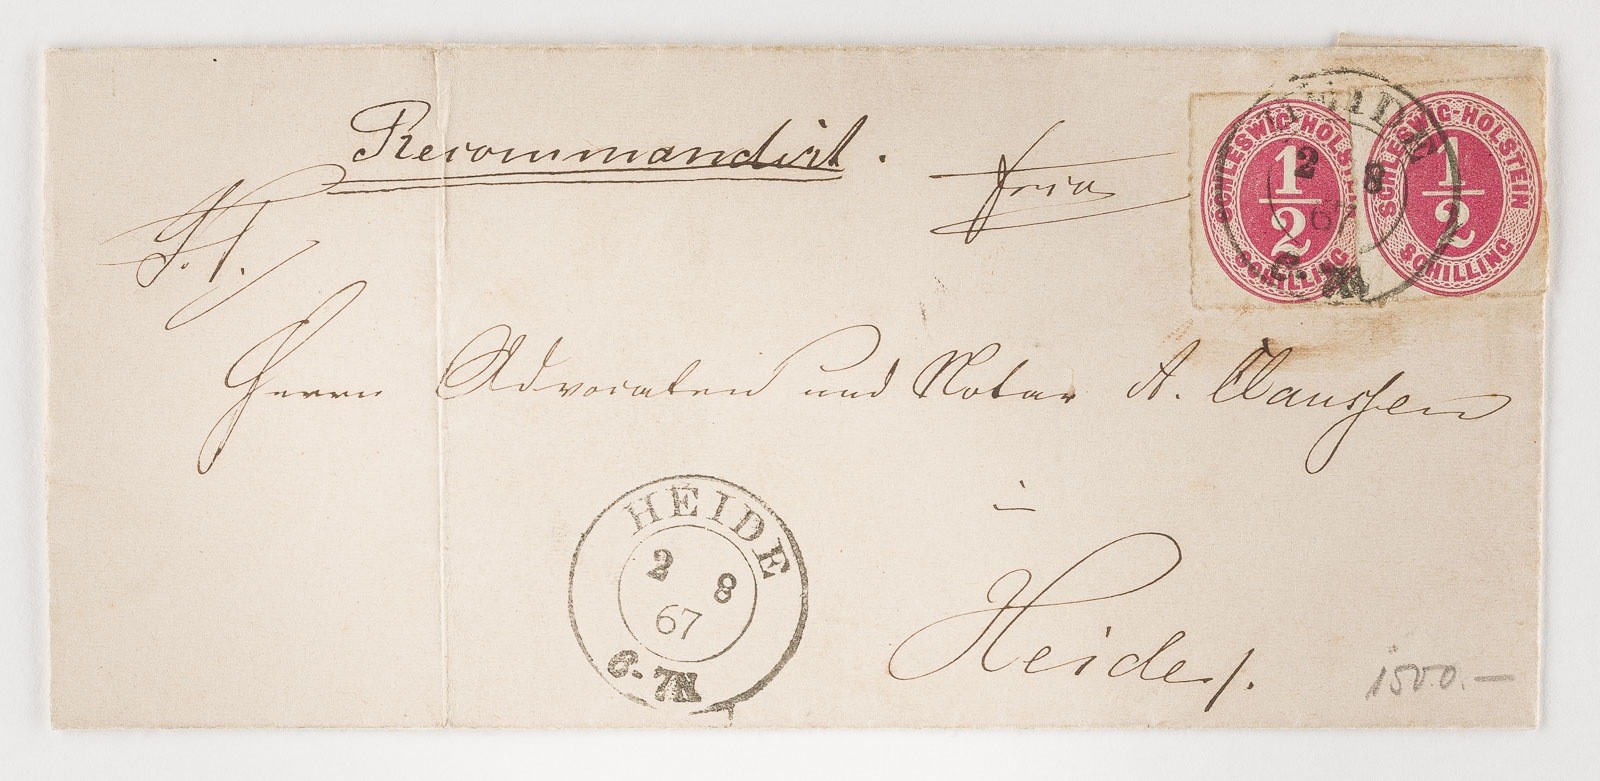 Recommandirt.
frco
SCHLESWIG-HOLSTEIN
1/2
SCHILLING
SCHLESWIG-HOLSTEIN
1/2
SCHILLING
HEIDE
2 8
67
6-7N
Herrn Advocaten und Notar A. Claussen
in
Heide/.
HEIDE
2 8
67
6-7N
1500.—